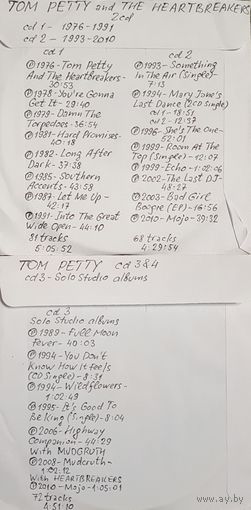 TOM PETTY and THE HEARTBREAKERS
2cd
cd 1 - 1976-1991
cd 2 - 1993-2010
cd 1
℗1976-Tom Petty
And The Heartbreakers-
30:53
℗1978-You're Gonna
Get It-29:40
℗1979-Damn The
Torpedoes-36:54
℗1981-Hard Promises-
40:18
℗1982-Long After
Dark-37:38
℗1985-Southern
Accents-43:58
℗1987-Let Me Up-
42:17
℗1991-Into The Great
Wide Open-44:10
81 tracks
5:05:52
cd 2
℗1993-Something
In The Air (Single)-
7:13
℗1994-Mary Jane's
Last Dance (2CD Single)
cd 1-18:51
cd 2-12:37
℗1996-She's The One-
52:01
℗1999-Room At The
Top (Single)-12:07
℗1999-Echo-1:02:06
℗2002-The Last DJ-
48:27
℗2003-Bad Girl
Boogie (EP)-16:56
℗2010-Mojo-39:32
68 tracks
4:29:54
TOM PETTY cd 3&4
cd 3-Solo Studio albums
cd 3
Solo Studio albums
℗1989-Full Moon
Fever-40:03
℗1994-You Don't
Know How It Feels
(CD Single)-8:31
℗1994-Wildflowers-
1:02:49
℗1995-It's Good To
Be King (Single)-8:04
℗2006-Highway
Companion-44:29
With MUDCRUTH
℗2008-Mudcruth-
1:02:12
With HEARTBREAKERS
℗2010-Mojo-1:05:01
72 tracks
4:51:10
www.ay.by